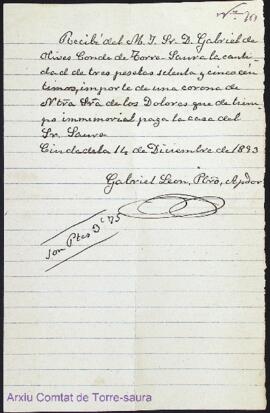 Recibí del M. I. Sr. D. Gabriel de
Olives Conde de Torre-Saura la canti-
dad de tres pesetas setenta y cinco cen-
timos, importe de una corona de
Ntra Sra de los Dolores que de tiem-
po immemorial paga la casa del
Sr. Saura
Ciudadela 14 de Diciembre de 1893
Gabriel Leon, Pbro, Apdor
Son Ptas 3'75
Arxiu Comtat de Torre-saura